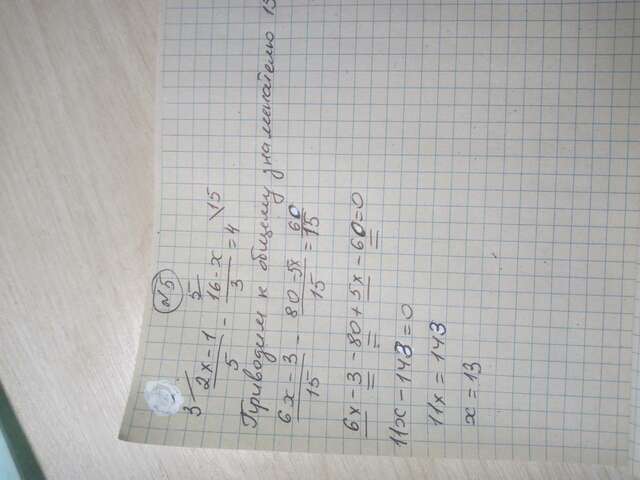 №5
3 5
2x-1/5 - 16-x/3 = 4 \15
Приводим к общему знаменателю 15
6x-3/15 - 80-5x/15 = 60/15
6x-3-80+5x-60=0
11x-143=0
11x=143
x=13